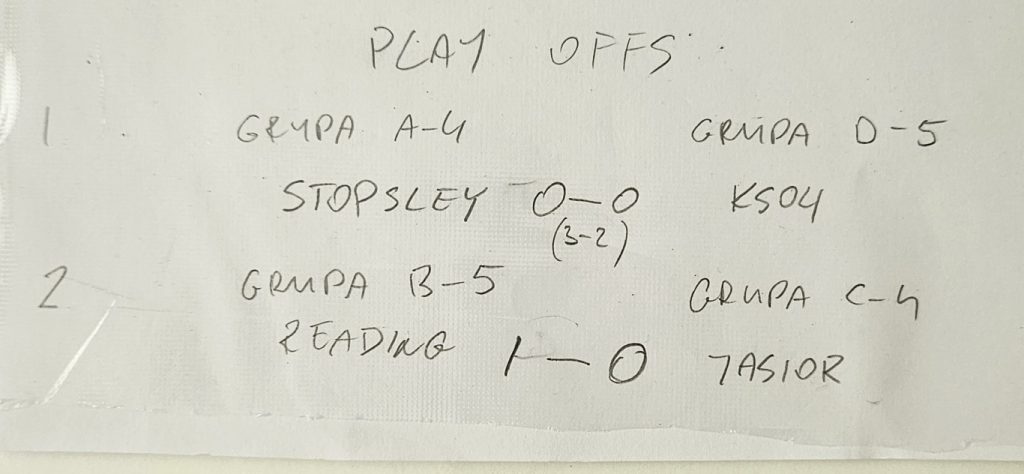 PLAY OFFS
1 GRUPA A-4 GRUPA D-5
STOPSLEY 0-0 KS04
(3-2)
2 GRUPA B-5 GRUPA C-4
READING 1-0 TASIOR